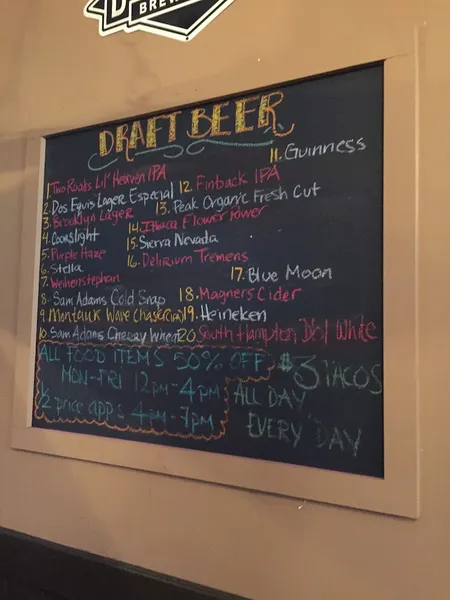 BREW
DRAFT BEER
1. Two Roads Lil' Heaven IPA
2. Dos Equis Lager Especial
3. Brooklyn Lager
4. Coors light
5. Purple Haze
6. Stella
7. Weihenstephan
8. Sam Adams Cold Snap
9 Montauk Wave Chaser (IPA)
10. Sam Adams Cherry Wheat
11. Guinness
12. Finback IPA
13. Peak Organic Fresh Cut
14. Ithaca Flower Power
15. Sierra Nevada
16. Delirium Tremens
17. Blue Moon
18. Magners Cider
19. Heineken
20 South Hampton Dbl White
ALL FOOD ITEMS 50% OFF
MON-FRI 12pm-4pm
1/2 price apps 4pm-7pm
$3 TACOS
ALL DAY
EVERY DAY